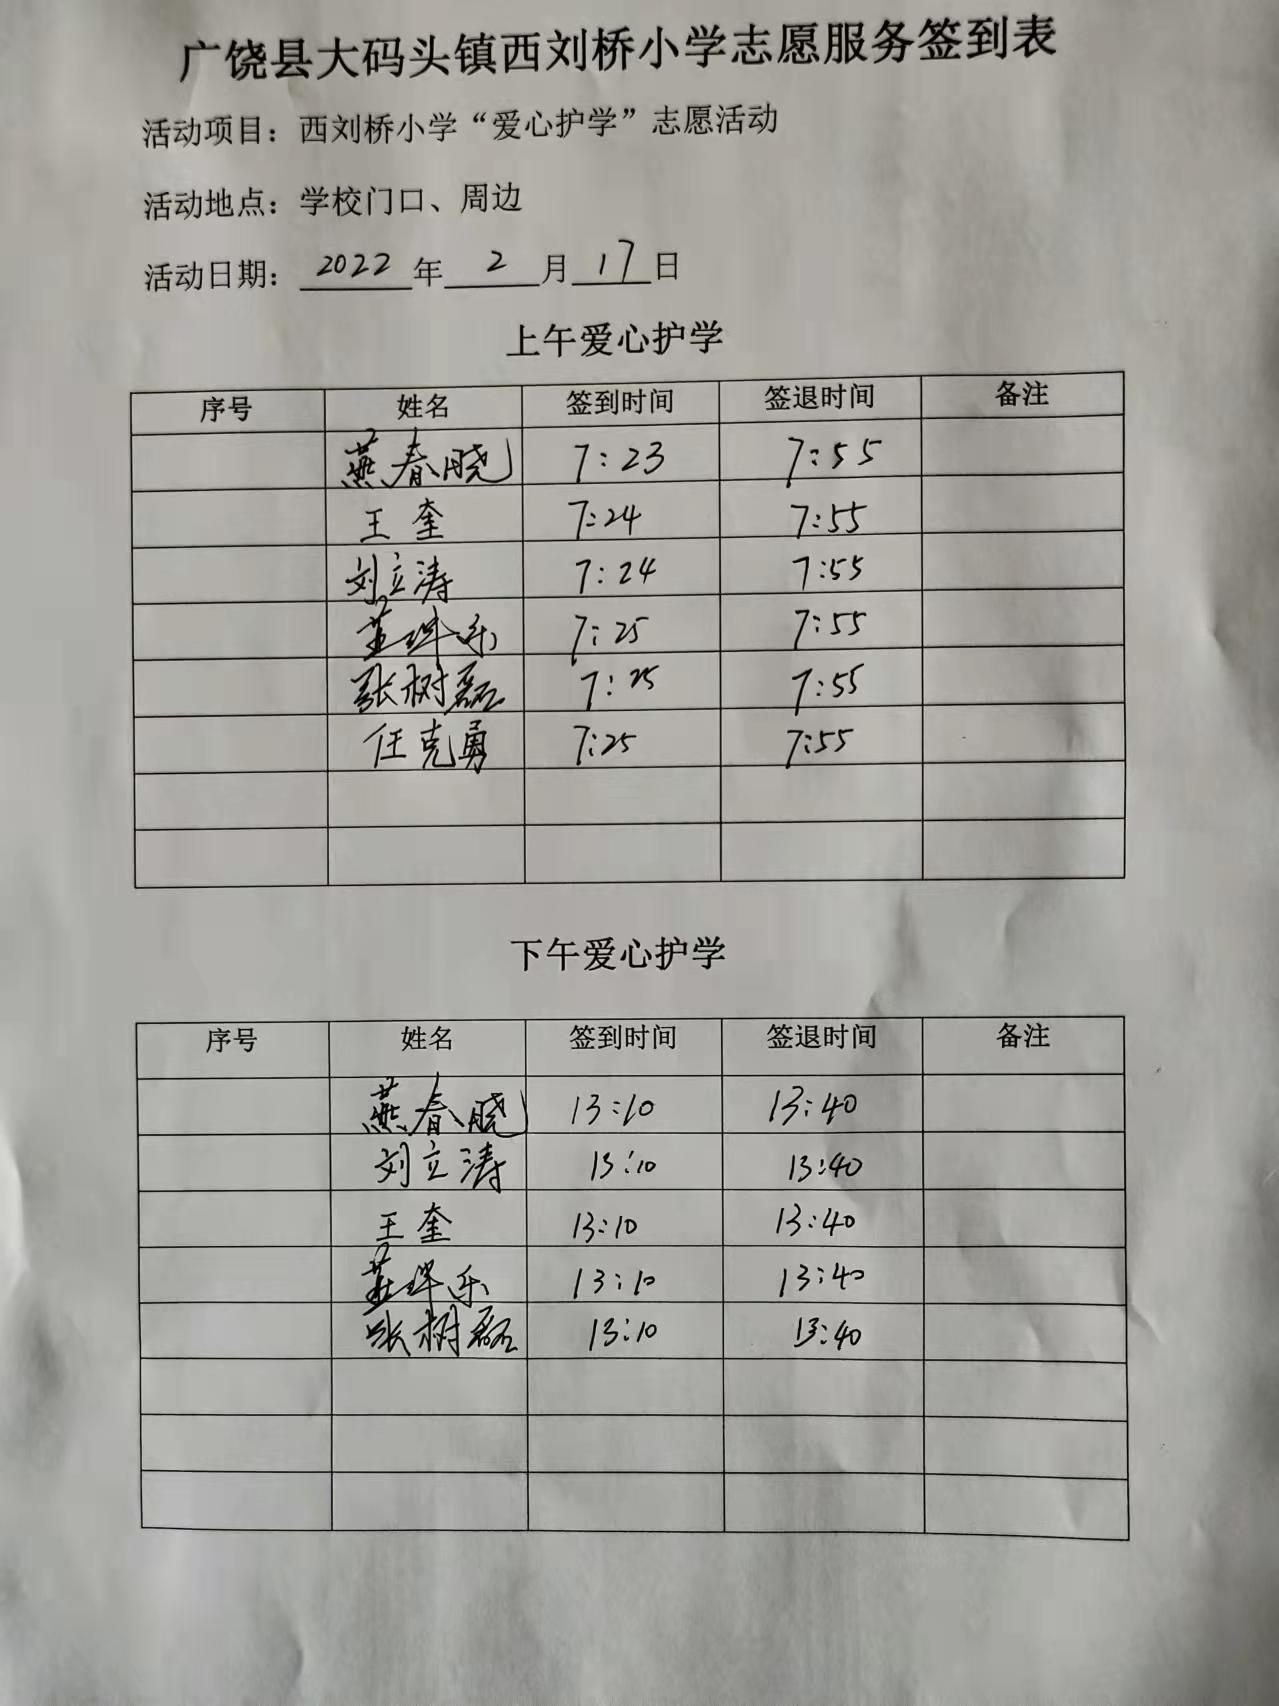 广饶县大码头镇西刘桥小学志愿服务签到表
活动项目：西刘桥小学“爱心护学”志愿活动
活动地点：学校门口、周边
活动日期： 2022 年 2 月 17 日
上午爱心护学
序号 姓名 签到时间 签退时间 备注
燕春晓 7:23 7:55
王奎 7:24 7:55
刘立涛 7:24 7:55
7:25 7:55
张树磊 7:25 7:55
任克勇 7:25 7:55
下午爱心护学
序号 姓名 签到时间 签退时间 备注
燕春晓 13:10 13:40
刘立涛 13:10 13:40
王奎 13:10 13:40
13:10 13:40
张树磊 13:10 13:40